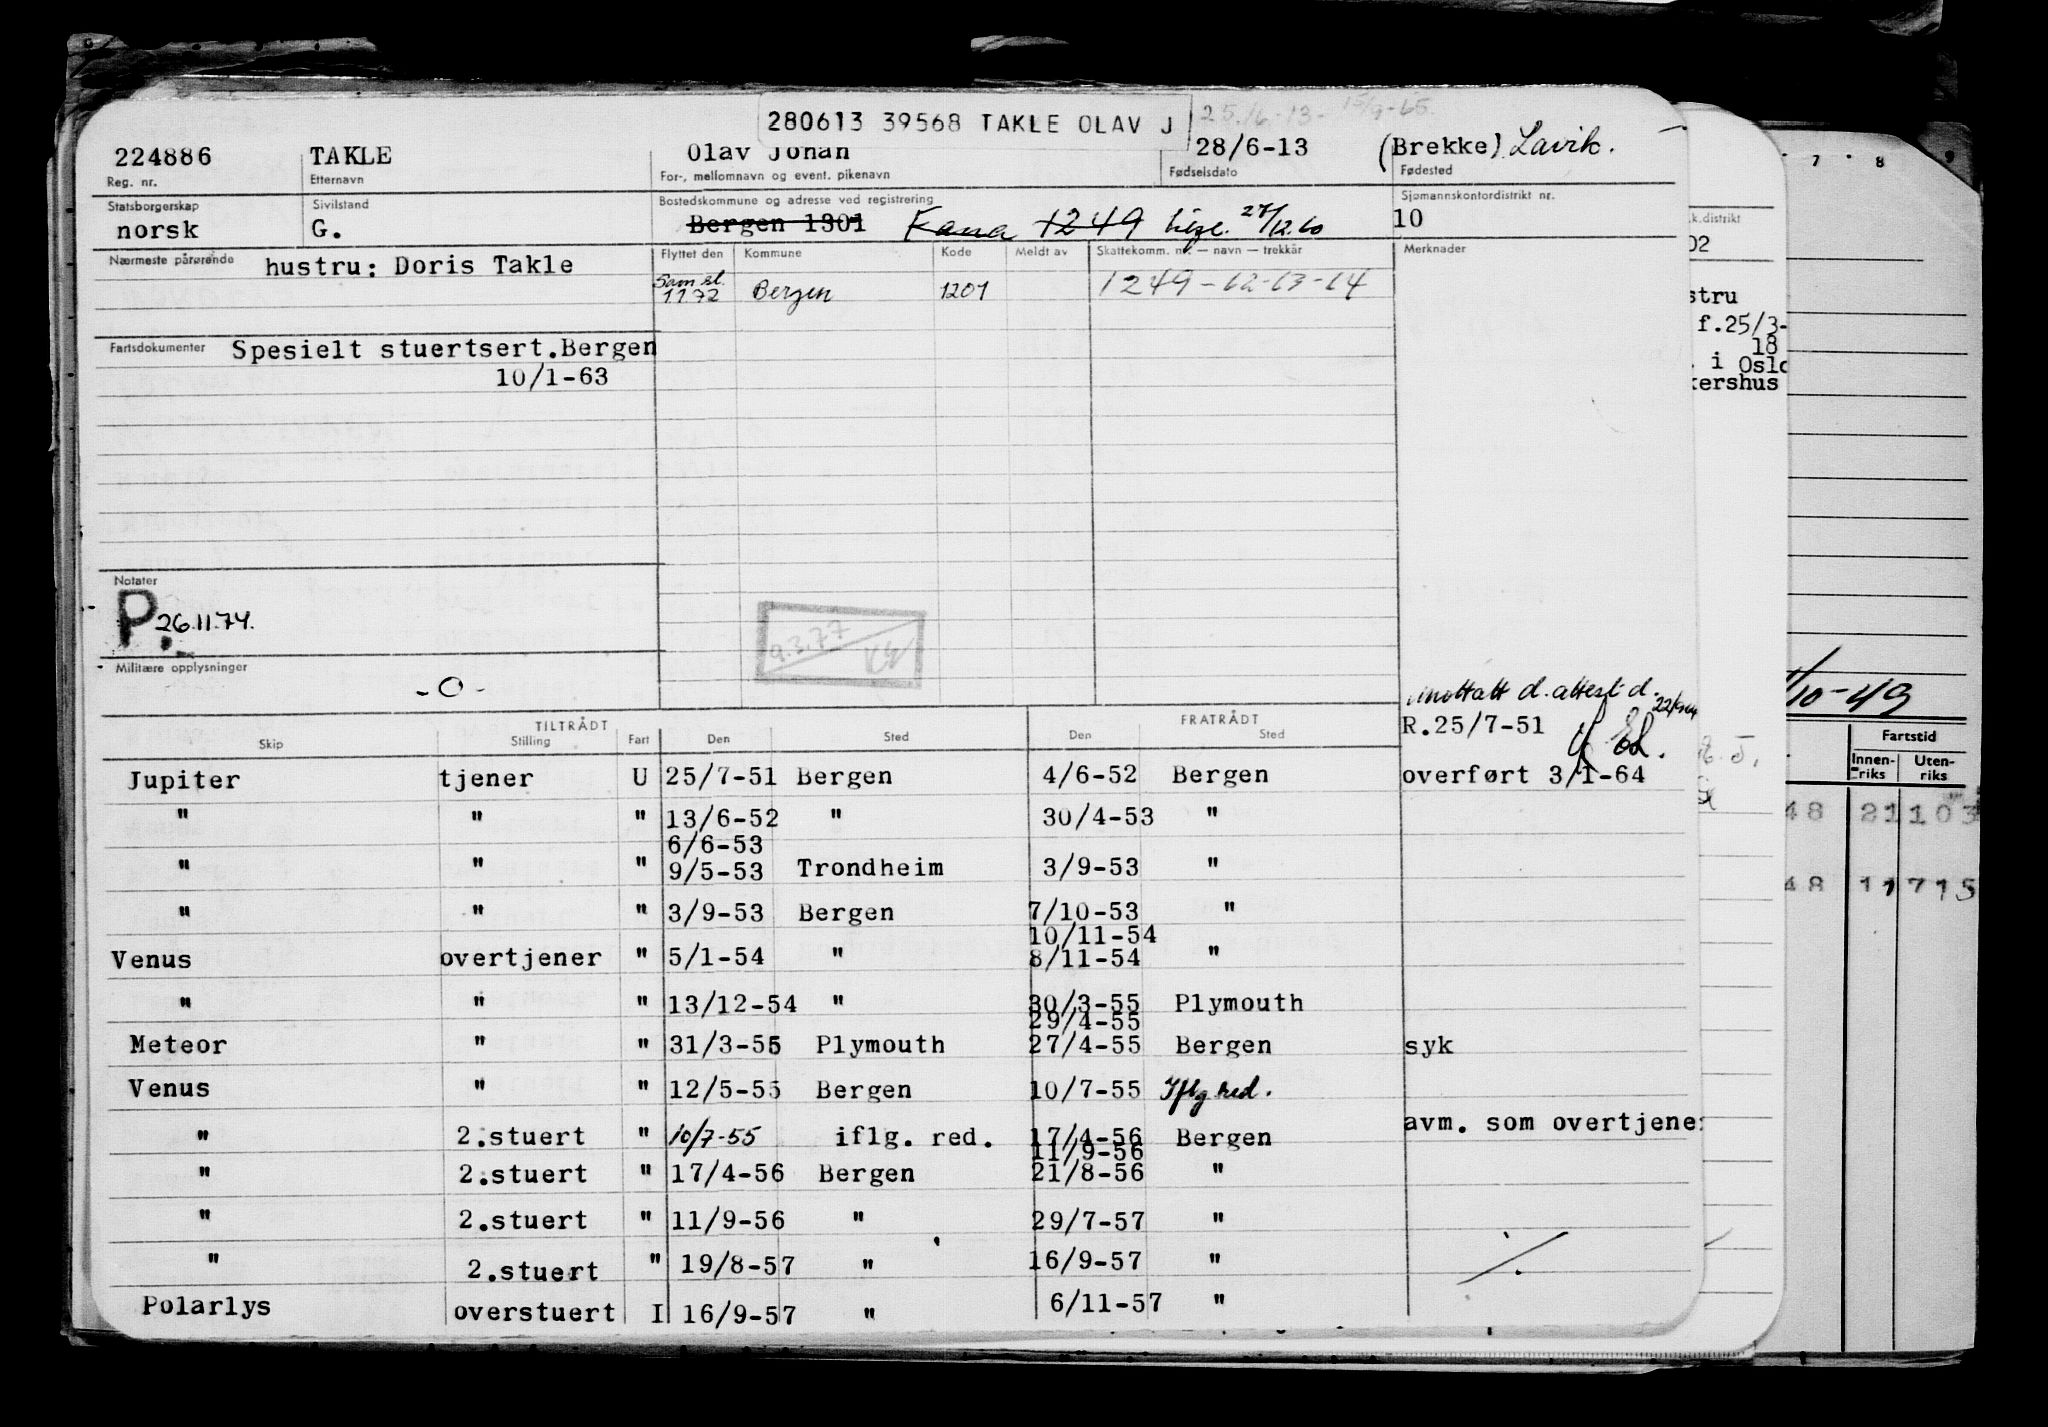 280613 39568 TAKLE OLAV J
25/6-13- 15/9-65.
224886 TAKLE Olav Johan 28/6-13 (Brekke) Lavik.
Reg. nr. Etternavn For-, mellomnavn og event. pikenavn Fødselsdato Fødested
Statsborgerskap Sivilstand Bostedskommune og adresse ved registrering Sjømannskontordistrikt nr.
norsk G. Bergen 1301 Fana 1249 27/12.60 10
Nærmeste pårørende hustru: Doris Takle Flyttet den Kommune Kode Meldt av Skattekomm. nr. — navn — trekkår Merknader
1172 Bergen 1201 1249-12-13-14
Fartsdokumenter Spesielt stuertsert.Bergen
10/1-63
Notater
P. 26.11.74.
9.3.77
Militære opplysninger
-0-
mottatt d.attest d. 22/9-64
TILTRÅDT FRATRÅDT R.25/7-51
Skip Stilling Fart Den Sted Den Sted
Jupiter tjener U 25/7-51 Bergen 4/6-52 Bergen overført 3/1-64
" " " 13/6-52 " 30/4-53 "
6/6-53
" " " 9/5-53 Trondheim 3/9-53 "
" " " 3/9-53 Bergen 7/10-53 "
10/11-54
Venus overtjener " 5/1-54 " 8/11-54 "
" " " 13/12-54 " 30/3-55 Plymouth
29/4-55
Meteor " " 31/3-55 Plymouth 27/4-55 Bergen syk
Venus " " 12/5-55 Bergen 10/7-55 Iflg red.
avm. som overtjene
" 2.stuert " 10/7-55 iflg. red. 17/4-56 Bergen
11/9-56
" 2.stuert " 17/4-56 Bergen 21/8-56 "
" 2.stuert " 11/9-56 " 29/7-57 "
" 2.stuert " 19/8-57 " 16/9-57 "
Polarlys overstuert I 16/9-57 " 6/11-57 "
7 8 9
k.distrikt
02
stru
f.25/3-
18
. i Oslo
kershus
/10-49
Fartstid
Innen-riks Uten-riks
48 21 103
48 11 715